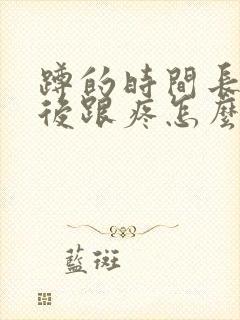 蹲的時間長
後跟疼怎麼
藍斑